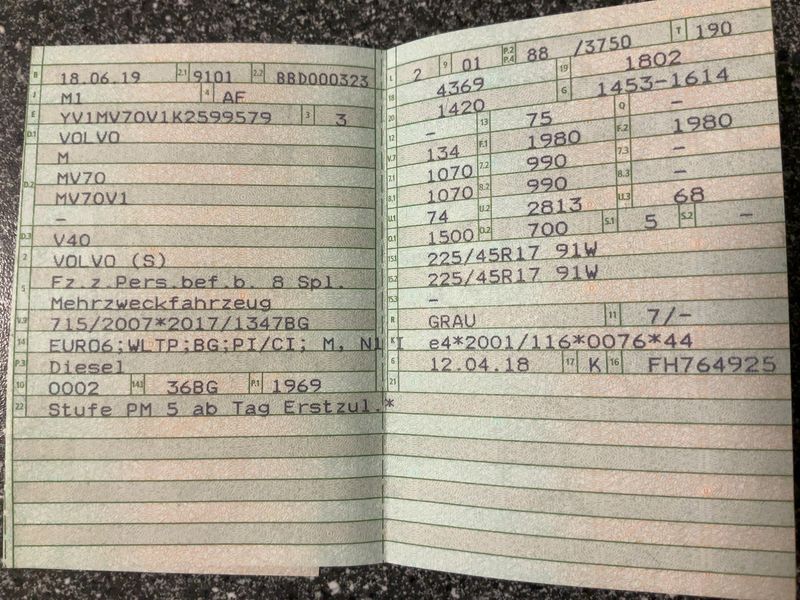 B 18.06.19 2.1 9101 2.2 BBD000323
J M1 4 AF
E YV1MV70V1K2599579 3 3
D.1 VOLVO
M
MV70
D.2 MV70V1
–
D.3 V40
2 VOLVO (S)
5 Fz.z.Pers.bef.b. 8 Spl.
Mehrzweckfahrzeug
V.9 715/2007*2017/1347BG
14 EURO6;WLTP;BG;PI/CI; M, N1 I
P.3 Diesel
10 0002 14.1 36BG P.1 1969
22 Stufe PM 5 ab Tag Erstzul.*
L 2 9 01 P.2 P.4 88 /3750 T 190
18 4369 19 1802
20 1420 G 1453-1614
12 – 13 75 Q –
V.7 134 F.1 1980 F.2 1980
7.1 1070 7.2 990 7.3 –
8.1 1070 8.2 990 8.3 –
U.1 74 U.2 2813 U.3 68
O.1 1500 O.2 700 S.1 5 S.2 –
15.1 225/45R17 91W
15.2 225/45R17 91W
15.3 –
R GRAU 11 7/-
K e4*2001/116*0076*44
6 12.04.18 17 K 16 FH764925
21